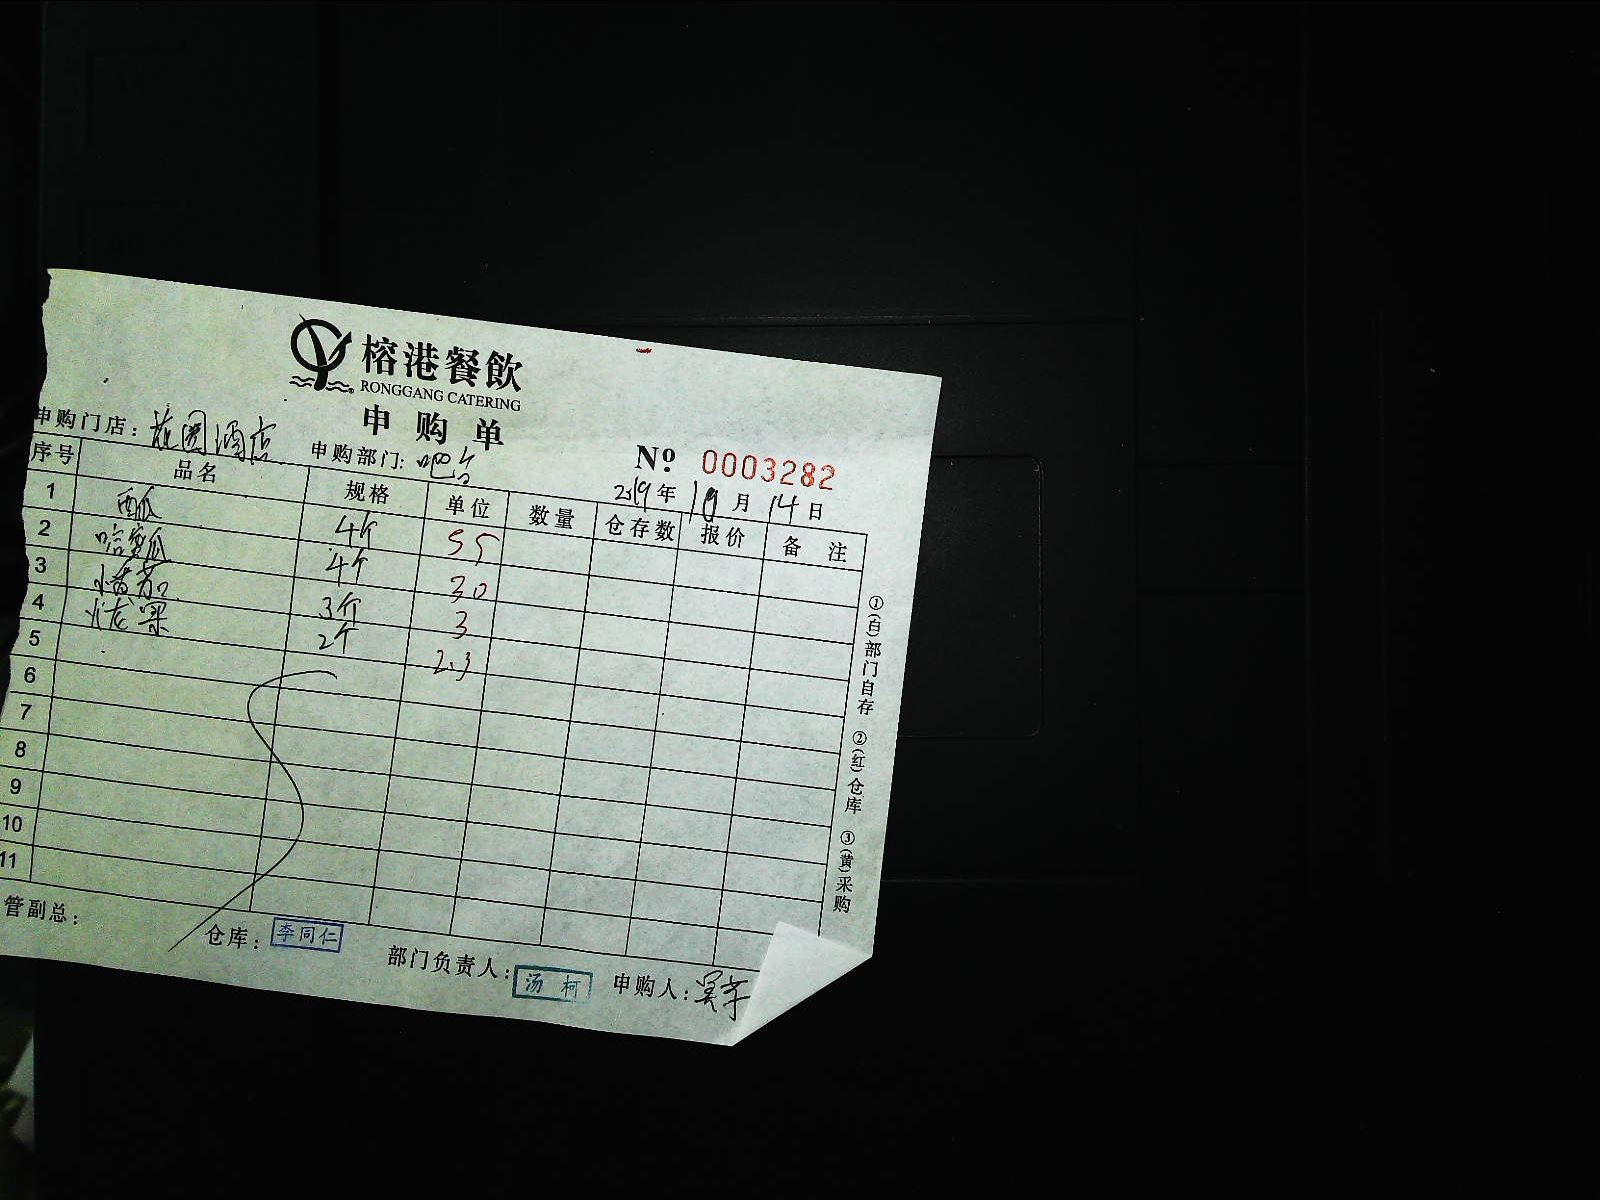 榕港餐飲
RONGGANG CATERING
申购单
申购门店：花园酒店 申购部门：吧台 Nº 0003282
2019年10月14日
序号 品名 规格 单位 数量 仓存数 报价 备注
1 西瓜 4个 55
2 哈密瓜 4个 30
3 小番茄 3个 3
4 火龙果 2个 2.3
5
6
7
8
9
10
11
①(白)部门自存 ②(红)仓库 ③(黄)采购
管副总： 仓库：李同仁 部门负责人：汤柯 申购人：吴